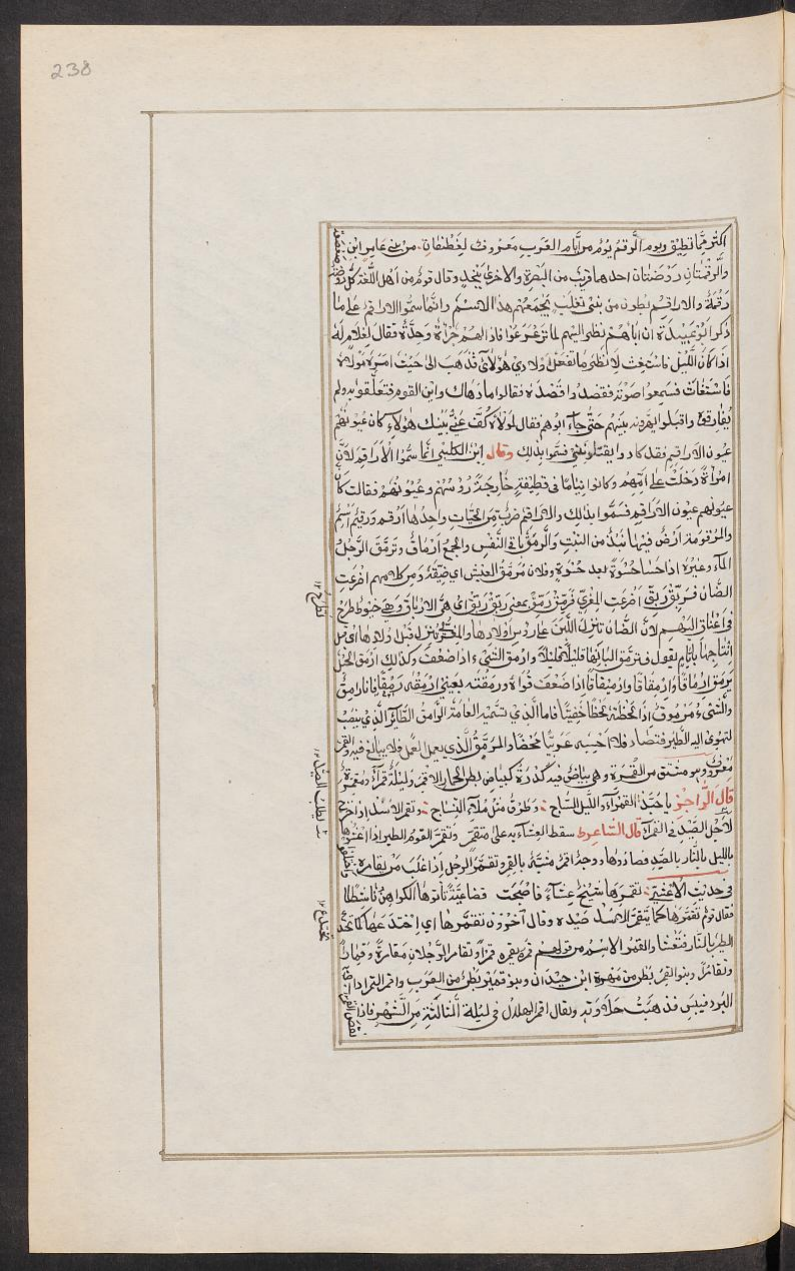 238
اكثر مما نطيق ويوم الرقم يوم من أيام العرب معروف لغطفان من بني عامر ابن
والرقمتان روضتان احدهما قريب من البصرة والاخرى بنجد وقال قوم من اهل اللغة كل روضة
رقمة والاراقم بطون من بني تغلب يجمعهم هذا الاسم وانما سموا الاراقم على ما
ذكر ابو عبيدة ان اباهم نظر اليهم لما ترعرعوا فاذا لهم جرأة وحدة فقال لغلام له
اذا كان الليل فاستغث لانظر ما يفعل اولادي هولاي فذهب الى حيث امره مولاه
فاستغاث فسمعوا صوته فقصدوا قصده فقالوا ما دهاك واين القوم فتعلقوا به ولم
يفارقوه واقبلوا يهزونه بينهم حتى جاء ابوهم فقال لولاه كف عني بنيك هولاء كان عيونهم
عيون الاراقم فقد كادوا يقتلونني فسموا بذلك وقال ابن الكلبي انما سموا الاراقم لان
امرأة دخلت على امهم وكانوا نياما في قطيفة خارجة رؤسهم وعيونهم فقالت كان
عيونهم عيون الاراقم فسموا بذالك والاراقم ضرب من الحيات واحدها ارقم ورقيم اسم
والمرقومة ارض فيها نبذ من النبت والرمق باقي النفس والجمع ارماق وترمق الرجل
الماء وغيره اذا حسا حسوة بعد حسوة وفلان مرمق العيش اي ضيقه ومن كلامهم اضرعت
الضان فربق ربق اضرعت المعزى فرمق رمق بمعنى ربق ربق اى هي الارباق وهي خيوط تطرح
في اعناق البهم لان الضان تنزل اللبن على رؤس اولادها والمعزى ينزل قبل ولادها اى قبل
انتاجها بايام يقول فترمق البانها قليلا قليلا وارمق الشيء اذا ضعف وكذلك ارمق الحبل
يرمق ارماقا وارمقاقا وارميقاقا اذا ضعف قواه ورمقته بعيني ارمقه رمقا فانا رامق
والشيء مرموق اذا لحظته لحظا خفيا فاما الذي تسميه العامة الرامق الطائر الذي ينصب
لتهوى اليه الطير فتصاد فلا احسبه عربيا محضا والمرمق الذي يعمل العمل فلا يبالغ فيه والقمر
معروف وهو مشتق من القمرة وهي بياض فيه كدرة كبياض بطن الحمار الاقمر وليلة قمراء ومقمرة
قال الراجز يا حبذا القمراء والليل الساج وطرق مثل ملاء النساج وتقمر الاسد اذا خرج
لاجل الصيد في القمراء قال الشاعر سقط العشاء به على متقمر وتقمر القوم الطير اذا اعشوها
بالليل بالنار بالصيد فصادوها ووجه اقمر مشبه بالقمر وتقمر الرجل اذا غلب من يقامره
في حديث الاعشى تقمرها شيخ عشاء فاصبحت قضاعية تأتي الكواهن ناشطا
فقال قوم تقمرها كما يتقمر الاسد صيده وقال آخرون تقمرها اي اختدعها كما تختدع
الطير بالنار فتعشا والقمر الاسم من قولهم قمره يقمره قمرا وتقامر الرجلان مقامرة وقمارا
وتقامرا وبنو القمر بطن من مهرة ابن حيدان وبنو قمير بطن من العرب واقمر التمر اذا
البرد فيبس فذهبت حلاوته ويقال اقمر الهلال في ليلة الثالثة من الشهر فاذا
تطرح ١٢
يطلب الصيد ١٢
تختدع ١٢